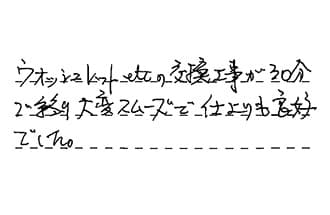 ウォシュレットetcの交換工事が30分
で終り大変スムーズで仕上りも良好
でした。